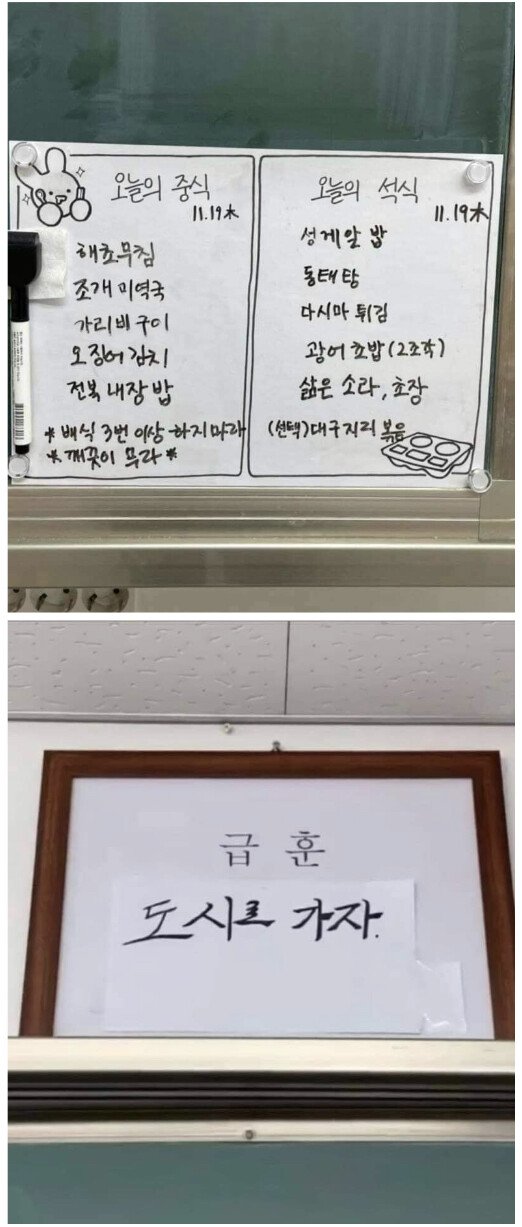 오늘의 중식
11.19木
해초무침
조개 미역국
가리비 구이
오징어 김치
전복 내장 밥
*배식 3번 이상 하지마라
*깨끗이 무라*
오늘의 석식
11.19木
성게알 밥
동태탕
다시마 튀김
광어 초밥(2조각)
삶은 소라, 초장
(선택)대구지리 볶음
급 훈
도시로 가자.